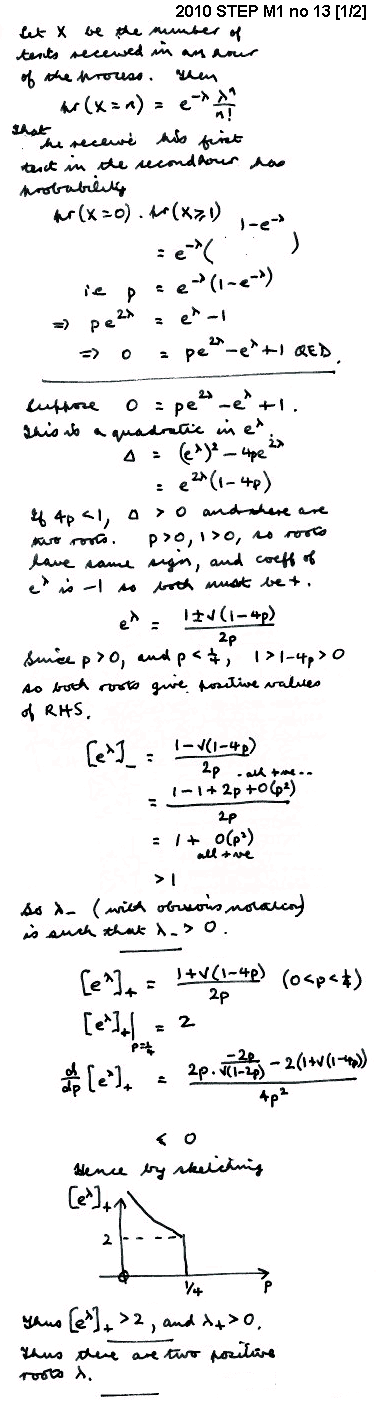 2010 STEP M1 no 13 [1/2]
Let X be the number of
texts received in an hour
of the process. Then
pr(X=n) = e^{-λ} λ^n/n!
That he receive his first
text in the second hour has
probability
pr(X=0). pr(X≥1)
= e^{-λ}( 1-e^{-λ} )
ie p = e^{-λ}(1-e^{-λ})
⇒ pe^{2λ} = e^λ - 1
⇒ 0 = pe^{2λ} - e^λ + 1 QED.
Suppose 0 = pe^{2λ} - e^λ + 1.
This is a quadratic in e^λ.
Δ = (e^λ)^2 - 4pe^{2λ}
= e^{2λ}(1-4p)
If 4p<1, Δ > 0 and there are
two roots. p>0, 1>0, so roots
have same sign, and coeff of
e^λ is -1 so both must be +.
e^λ = (1±√(1-4p))/2p
Since p>0, and p<1/4, 1>1-4p>0
so both roots give positive values
of RHS.
[e^λ]_- = (1-√(1-4p))/2p
- all +ve --
= (1-1+2p+O(p^2))/2p
= 1 + O(p^2)
all +ve
>1
So λ_- (with obvious notation)
is such that λ_- > 0.
[e^λ]_+ = (1+√(1-4p))/2p (0<p<1/4)
[e^λ]_+|_{p=1/4} = 2
d/dp [e^λ]_+ = (2p. -2p/√(1-2p) - 2(1+√(1-4p)))/4p^2
< 0
Hence by sketching
[e^λ]_+
2
O
1/4
p
Thus [e^λ]_+ >2, and λ_+>0.
Thus there are two positive
roots λ.